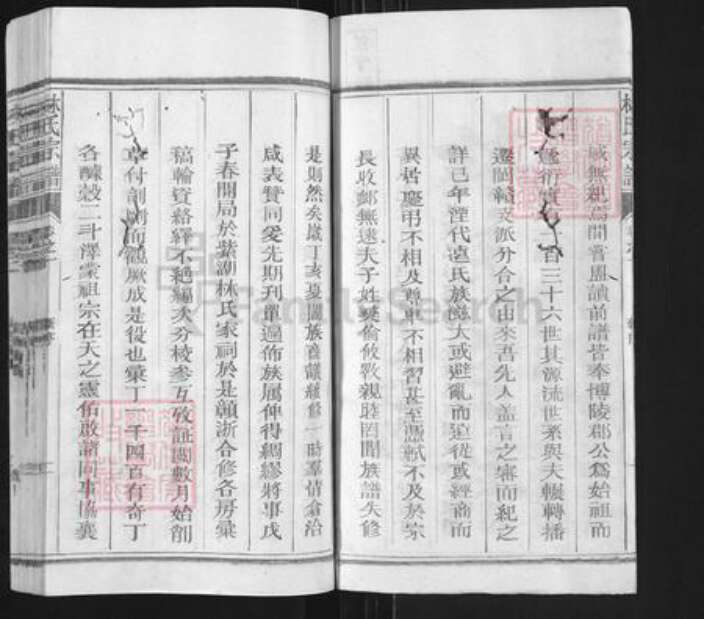 咸無親焉間嘗盥讀前譜皆奉博陵郡公爲始祖而
百三十六世其源流世系與夫輾轉播
遷岡續支派分合之由來吾先人蓋言之審而紀之
詳已年湮代遠氏族龐大或避亂而遠徙或經商而
異居慶弔不相及尊卑不相習甚至憑軾不及於宗
長收郵無逮夫子姓彝倫攸斁親睦罔聞族譜失修
是則然矣歲丁亥夏闔族喜議纘修一時羣情翕洽
咸表贊同爰先期刊單遍佈族屬俾得綢繆將事戊
子春開局於紫湖林氏家祠於是贛浙合修各房彙
稿輸資絡繹不絕編次分稜參互攷証閱數月始削
章付剞劂而觀厥成是役也彙丁一千四百有奇丁
各釀穀二斗澤蒙祖宗在天之靈佑啟諸同事協襄
林氏宗譜
林氏宗譜
FamilySearch